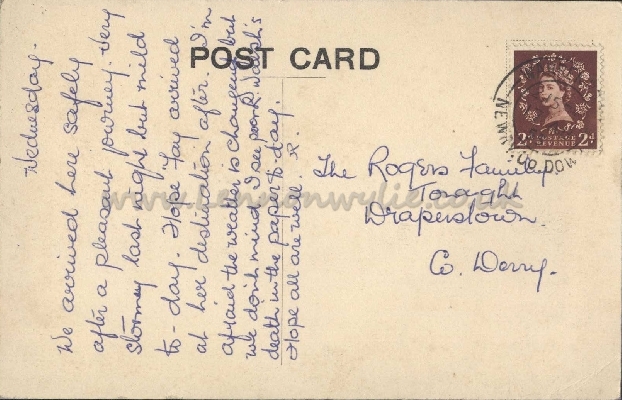 POST CARD
Wednesday.
We arrived here safely
after a pleasant journey. Very
stormy last night but mild
to-day. Hope Fay arrived
at her destination after. I'm
afraid the weather is changing but
we don't mind. I see poor R. Walsh's
death in the paper to-day.
Hope all are well R.
The Rogers Family
Toaght
Draperstown.
Co. Derry.
2d POSTAGE REVENUE 2d
NEW
CO. DOW
www.lennonwylie.co.uk